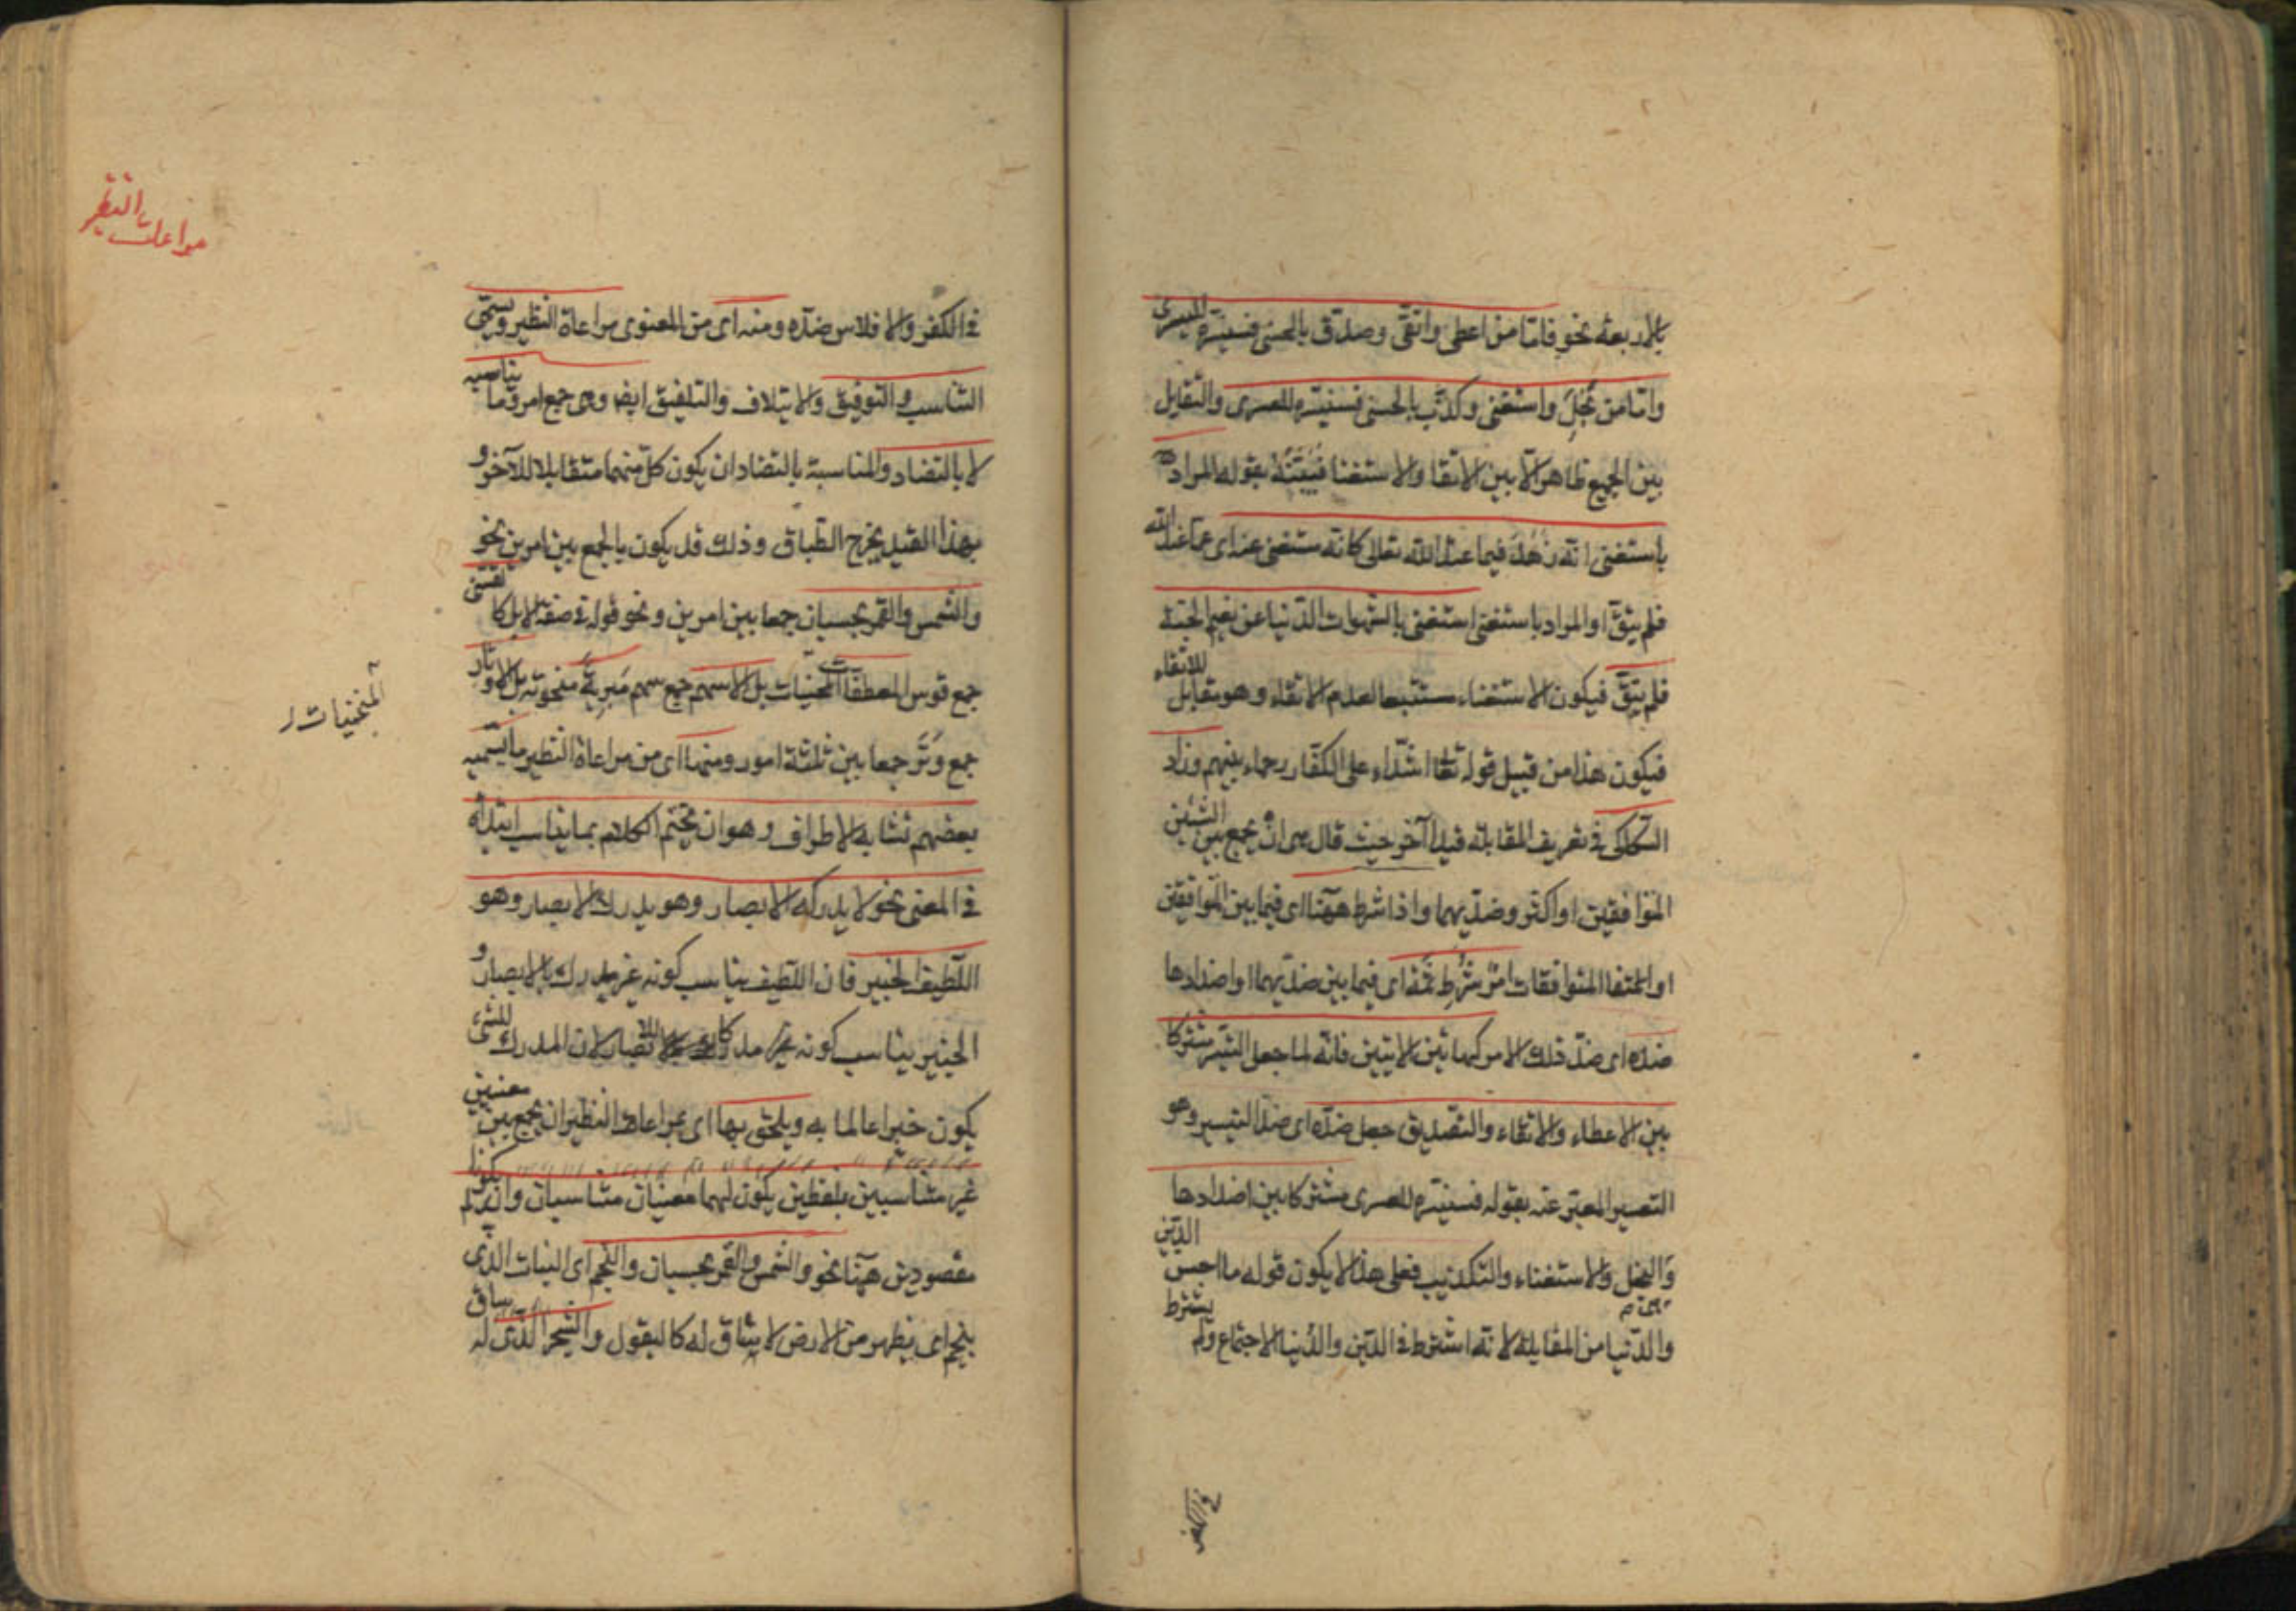 بالاربعة نحو فاما من اعطى واتقى وصدق بالحسنى فسنيسره لليسرى
واما من بَخِلَ واستغنى وكذّب بالحسنى فسنيسره للعسرى والتقابل
بين الجميع ظاهر الّا بين الاتقا والاستغنا فبيّنه بقوله المراد
باستغنى انه زَهُدَ فيما عند الله تعالى كانه مستغنى عنه اى عما عند الله
فلم يتّق او المراد باستغنى استغنى بالشهوات الدّنيا عن نعيم الجنة
فلم يتّق فيكون الاستغناء مستتبعا لعدم الاتقاء وهو مقابل للاتقاء
فيكون هذا من قبيل قوله تعا اشدّاء على الكفّار رحماء بينهم وزاد
السّكاكى فى تعريف المقابلة قيدا آخر حيث قال هى ان يجمع بين الشيئين
المتوافقين او اكثر وضدّيهما واذا شرط ههنا اى فيما بين المتوافقين
او المتوافقات امرٌ شُرِط ثمّة اى فيما بين ضدّيهما او اضدادها
ضدّه اى ضدّ ذلك الامر كهاتين الايتين فانّه لما جعل التيسير مشتركا
بين الاعطاء والاتقاء والتّصديق جعل ضدّه اى ضدّ التيسير وهو
التعسير المعبّر عنه بقوله فسنيسّره للعسرى مشتركا بين اضدادها
وهى
وَالبخل والاستغناء والتكذيب فعلى هذا لا يكون قوله ما احسن الدّين
والدّنيا من المقابلة لانّه اشترط فى الدّين والدّنيا الاجتماع ولم يشترط
فى الكفر
مراعات النظير
فى الكفر والافلاس ضدّه ومنه اى من المعنوى مراعاة النظير ويسمّى
التناسب والتوفيق والايتلاف والتلفيق ايضا وهى جمع امر وما يناسبه
لا بالتضاد والمناسبة بالتضاد ان يكون كلّ منهما متقابلا للآخر و
بهذا القيد يخرج الطّباق وذلك قد يكون بالجمع بين امرين نحو
والشمس والقمر بحسبان جمعا بين امرين ونحو قوله فى صفة الابل كالقسىّ
جمع قوس المعطفات المحنيات بل الاسهم جمع سهم مَبرِيةً منحوتة بل الاوتار
المنحنيات
جمع وَتَر جمعا بين ثلثة امور ومنها اى من مراعاة النظير ما يسمّيه
بعضهم تشابه الاطراف وهو ان يختم الكلام بما يناسب ابتداه
فى المعنى نحو لا يدركه الابصار وهو يدرك الابصار وهو
اللّطيف الخبير فان اللّطيف يناسب كونه غير مدرك بالابصار و
الخبير يناسب كونه مدركا للابصار لان المدرك للشىء
يكون خبيرا عالما به ويلحق بها اى بمراعات النظير ان يجمع بين معنيين
غير متناسبين بلفظين يكون لهما معنيان متناسبان وان لم يكونا
مقصودين ههنا نحو والشمس والقمر بحسبان والنّجم اى النبات الذى
ينجم اى يظهر من الارض لا ساق له كالبقول والشجر الذى له ساق